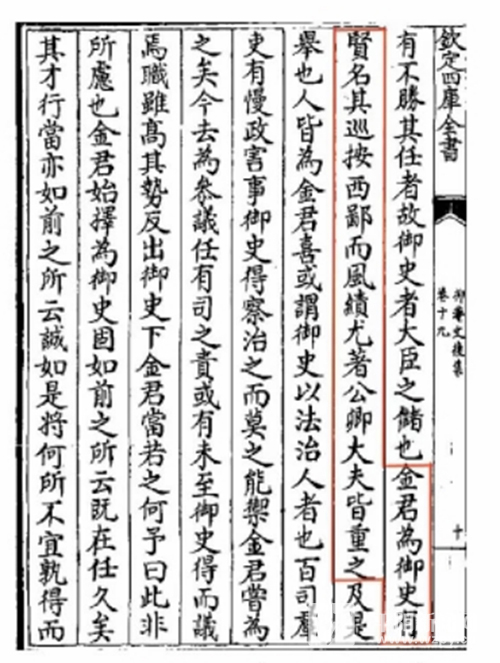 欽定四庫全書
抑菴文後集
卷十九
十
有不勝其任者故御史者大臣之儲也金君為御史有
賢名其巡按西鄙而風績尤著公卿大夫皆重之及是
舉也人皆為金君喜或謂御史以法治人者也百司羣
吏有慢政害事御史得察治之而莫之能禦金君嘗為
之矣今去為叅議任有司之責或有未至御史得而議
焉職雖髙其勢反出御史下金君當若之何予曰此非
所慮也金君始擇為御史固如前之所云既在任久矣
其才行當亦如前之所云誠如是將何所不宜孰得而